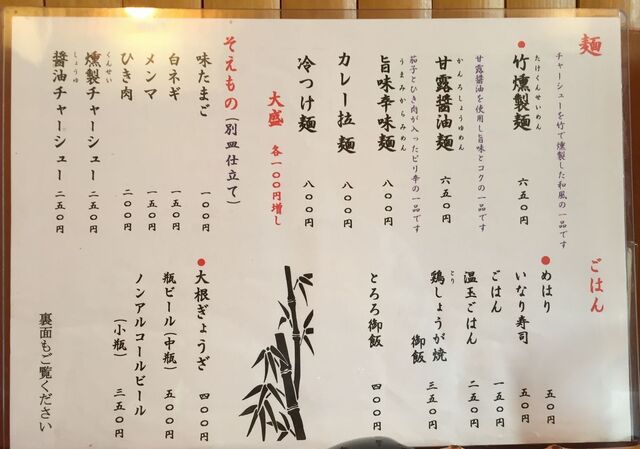 麺
チャーシューを竹で燻製した和風の一品です
たけくんせいめん
●竹燻製麺 六五〇円
甘露醤油を使用し旨味とコクの一品です
かんろしょうゆめん
甘露醤油麺 六五〇円
茄子とひき肉が入ったピリ辛の一品です
うまみからみめん
旨味辛味麺 八〇〇円
カレー拉麺 八〇〇円
冷つけ麺 八〇〇円
大盛 各一〇〇円増し
そえもの(別皿仕立て)
味たまご 一〇〇円
白ネギ 一五〇円
メンマ 一五〇円
ひき肉 二〇〇円
くんせい
燻製チャーシュー 二五〇円
しょうゆ
醤油チャーシュー 二五〇円
ごはん
●めはり 五〇円
いなり寿司 五〇円
ごはん 一五〇円
温玉ごはん 二五〇円
とり
鶏しょうが焼
御飯 三五〇円
とろろ御飯 四〇〇円
●大根ぎょうざ 四〇〇円
瓶ビール(中瓶) 五〇〇円
ノンアルコールビール
(小瓶) 三五〇円
裏面もご覧ください